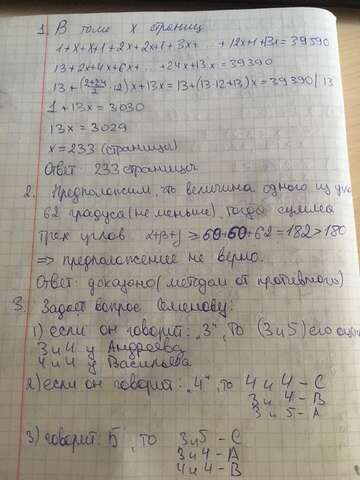 1. В томе x страниц
1+x+x+1+2x+2x+1+3x+ .. +12x+1+13x=39390
13+2x+4x+6x+ .. +24x+13x=39390
13+(2+24/2 ·12)x+13x=13+(13·12+13)x=39390 /13
1+13x=3030
13x=3029
x=233 (страницы)
Ответ: 233 страницы
2. Предположим, что величина одного из
62 градуса (не меньше), тогда сумма
трех углов ≥60+60+62=182>180
=> предположение не верно.
Ответ: доказано (методом от противного)
3. Задает вопрос Семенову:
1) если он говорит: „3", то (3 и 5) его
3 и 4 у Андреева
4 и 4 у Васильева
2) если он говорит: „4", то 4 и 4 – С
3 и 4 – В
3 и 5 – А
3) говорит: 5, то 3 и 5 – С
3 и 4 – А
4 и 4 – В